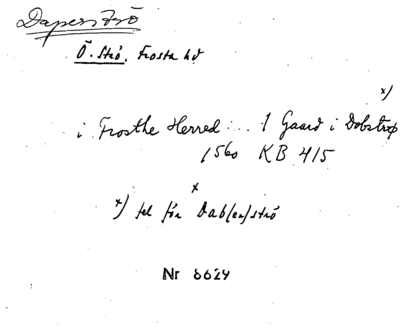 Daperströ
Ö. Strö, Frosta hd
x)
i Frosthe Herred ... 1 Gaard i Dobstrop
1560 KB 415
x
x) fel för Dab(er)strö
Nr 6624